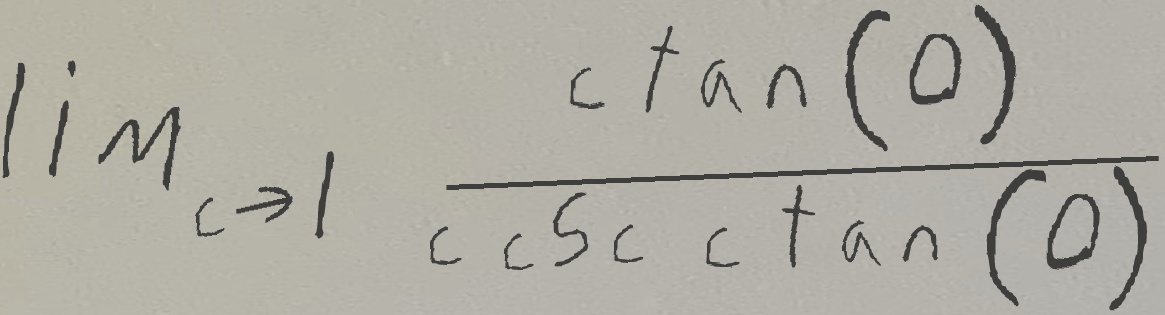 lim c→1 c tan(0)
c csc c tan(0)